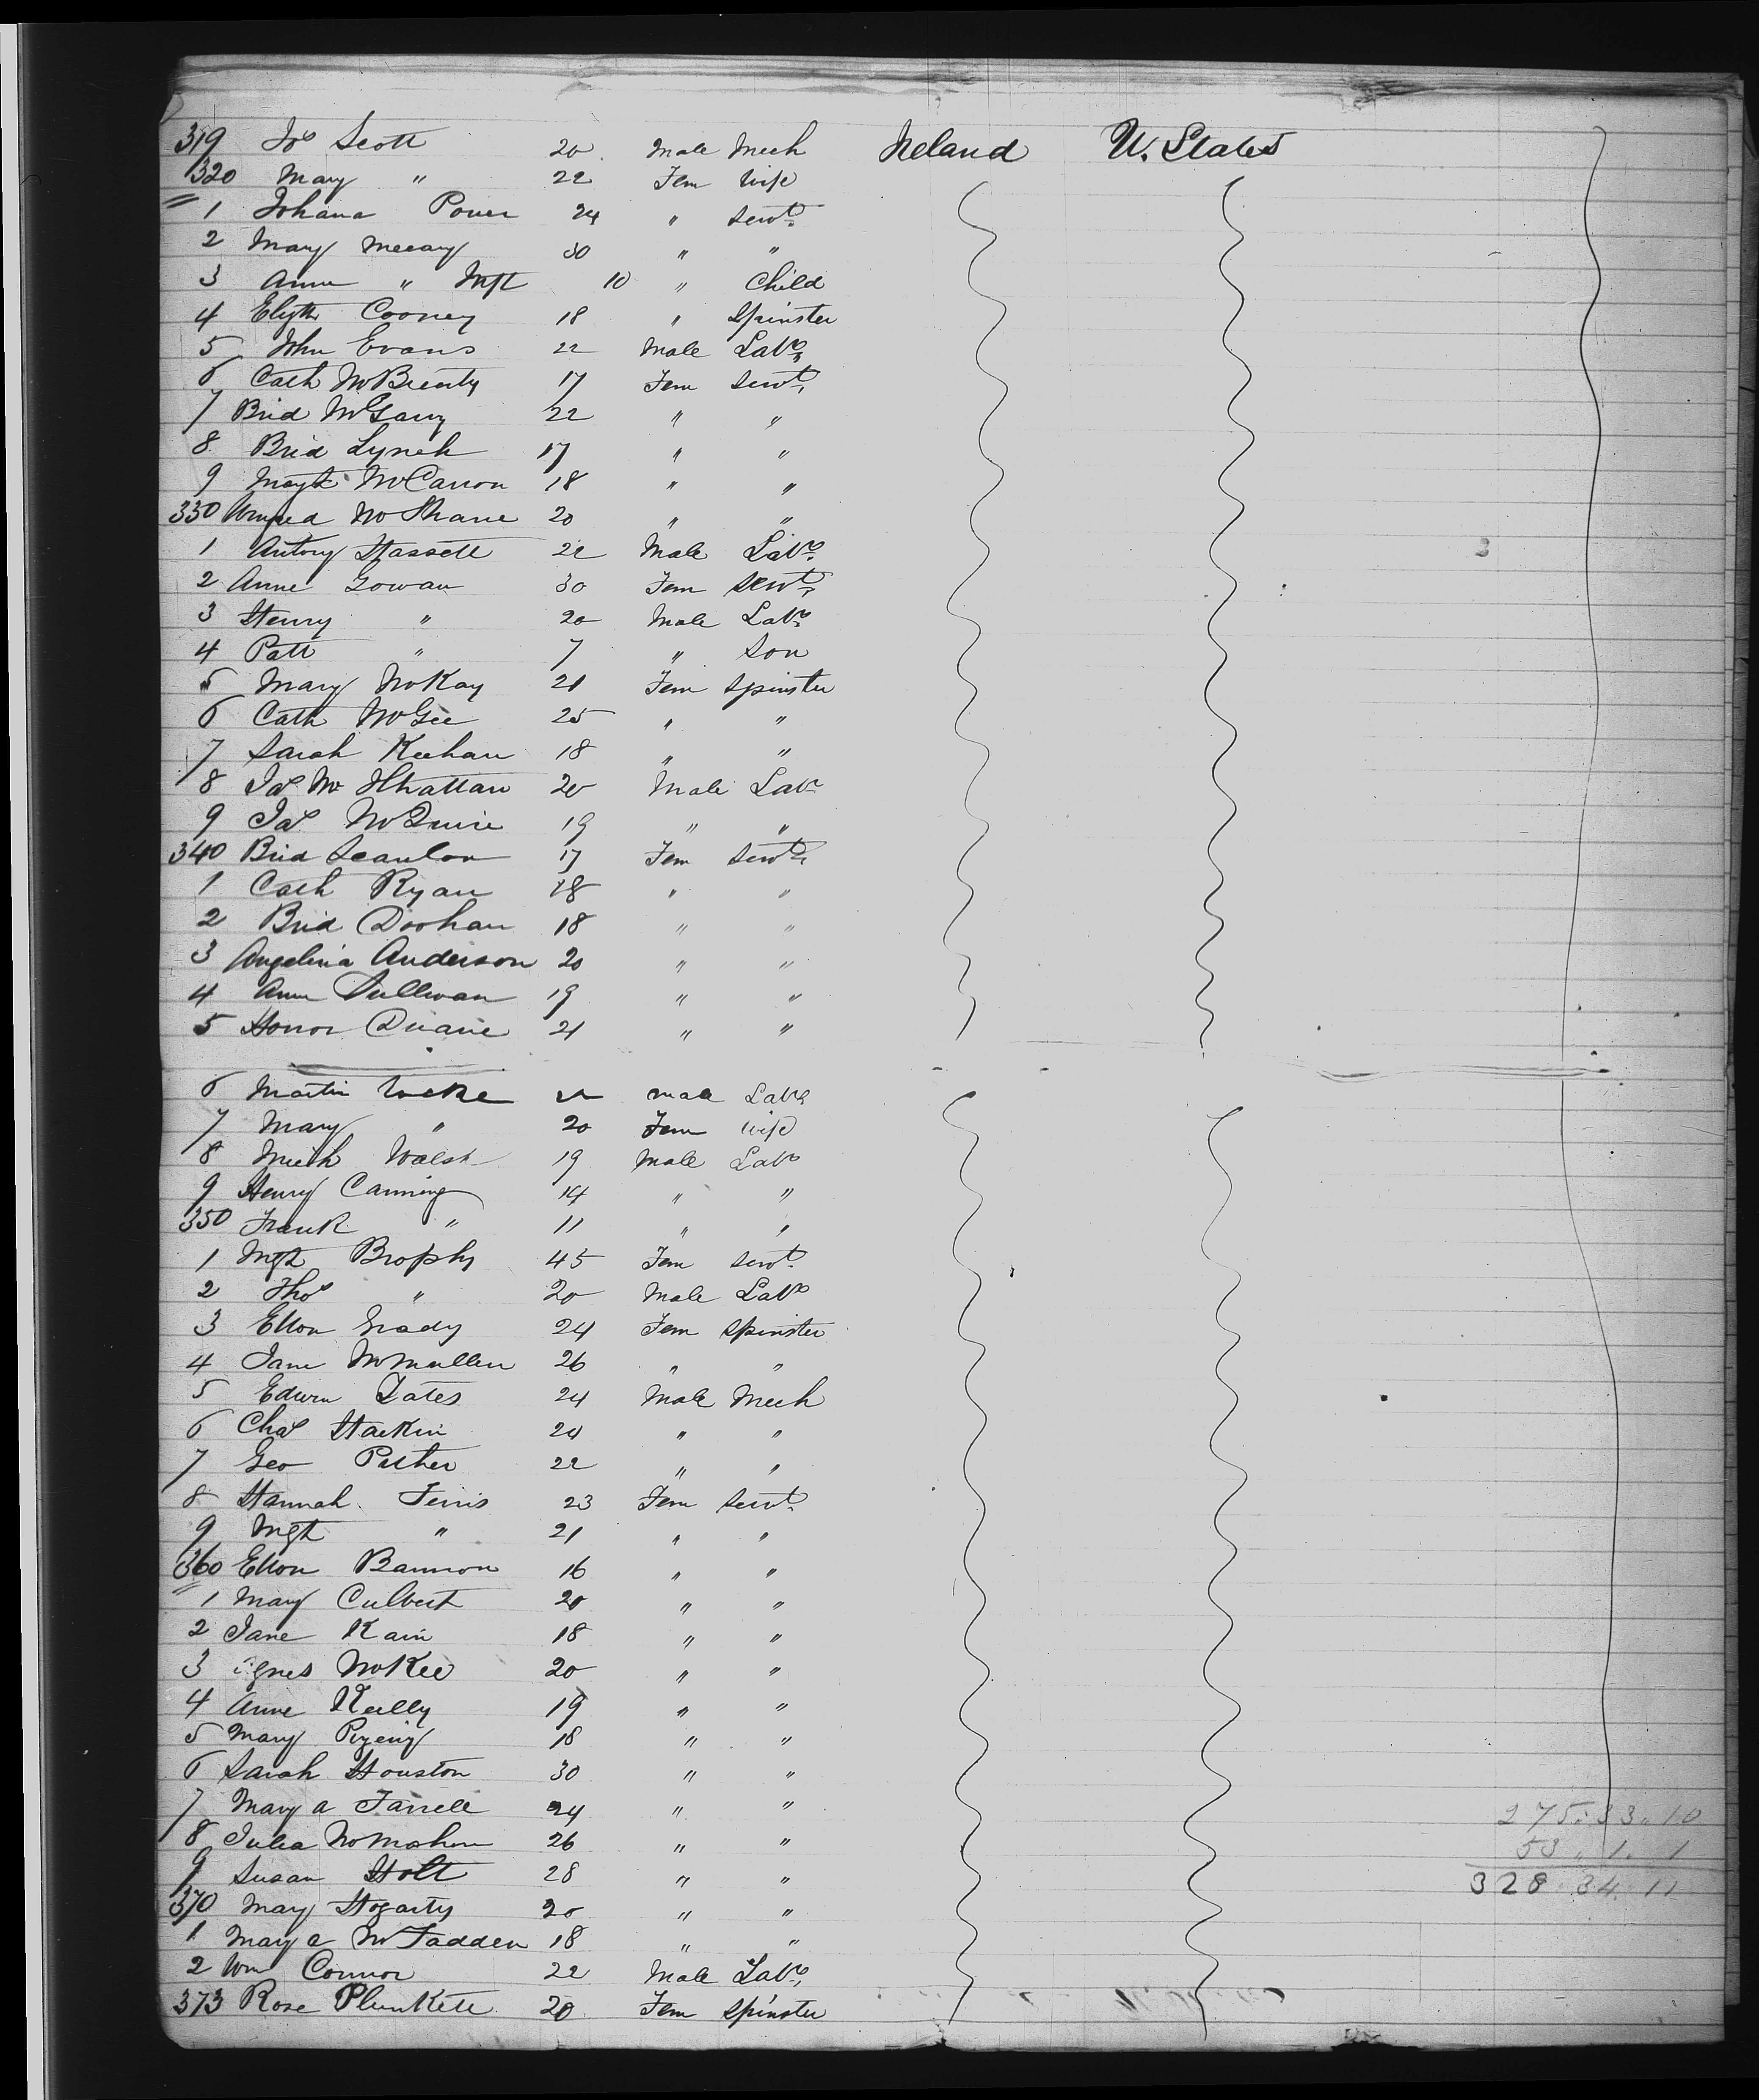 319 Jos Scott 20 Male Mech Ireland U. States
320 Mary " 22 Fem wife
1 Johana Power 24 " Servt
2 Mary 30 " "
3 Anne " Inft 10 " Child
4 Elizth Cooney 18 " Spinster
5 John Evans 22 Male Labr
6 Cath 17 Fem Servt
7 Brid McGarry 22 " "
8 Brid Lynch 17 " "
9 Magt McCarron 18 " "
330 McShane 20 " "
1 Antony Hassett 22 Male Labr
2 Anne Gowan 30 Fem Servt
3 Henry " 20 Male Labr
4 Patt " 7 " Son
5 Mary McKay 21 Fem Spinster
6 Cath McGee 25 " "
7 Sarah Keehan 18 " "
8 Jas Mc 20 Male Labr
9 Jas McGuire 19 " "
340 Brid Scanlon 17 Fem Servt
1 Cath Ryan 18 " "
2 Brid Doohan 18 " "
3 Angelina Anderson 20 " "
4 Ann Sullivan 19 " "
5 Honor Duane 21 " "
6 Martin Male Labr
7 Mary " 20 Fem wife
8 Mich Walsh 19 Male Labr
9 Henry Canning 14 " "
350 Frank " 11 " "
1 Mgt Brophy 45 Fem Servt
2 Thos " 20 Male Labr
3 Ellen Grady 24 Fem Spinster
4 Jane McMullen 26 " "
5 Edwin 24 Male Mech
6 Chas Harkin 24 " "
7 Geo 22 " "
8 Hannah Ferris 23 Fem Servt
9 Mgt " 21 " "
360 Ellen Bannon 16 " "
1 Mary Culbert 20 " "
2 Jane Kain 18 " "
3 Agnes McKee 20 " "
4 Anne Reilly 19 " "
5 Mary 18 " "
6 Sarah Houston 30 " "
7 Mary A Farrell 24 " "
8 Julia McMahon 26 " "
9 Susan Holt 28 " "
370 Mary Hogarty 20 " "
1 Mary A McFadden 18 " "
2 Wm Connor 22 Male Labr
373 Rose Plunkett 20 Fem Spinster
275 . 33 . 10
53 " 1 . 1
328 . 34 . 11